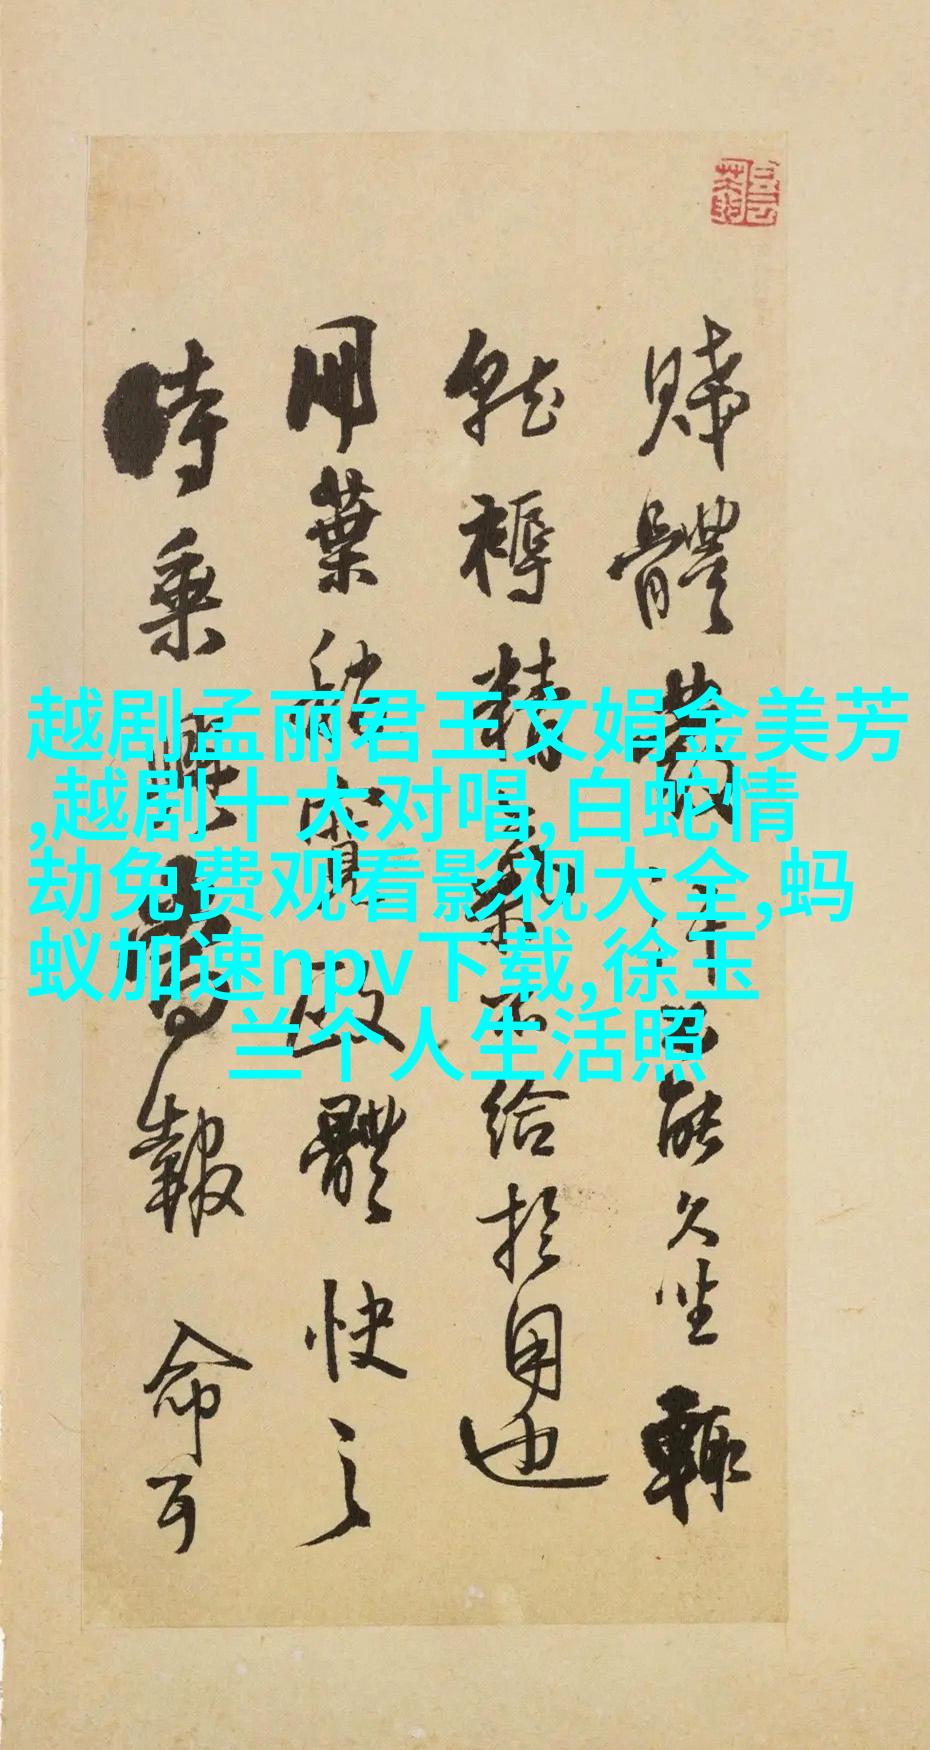 越剧孟丽君王文娟金美芳
,越剧十大对唱,白蛇情
劫免费观看影视大全,蚂
蚁加速npv下载,徐玉
兰个人生活照
賤體
能久坐輒
就褥精
給於用也
用葉
體快之
時乘
報命耳